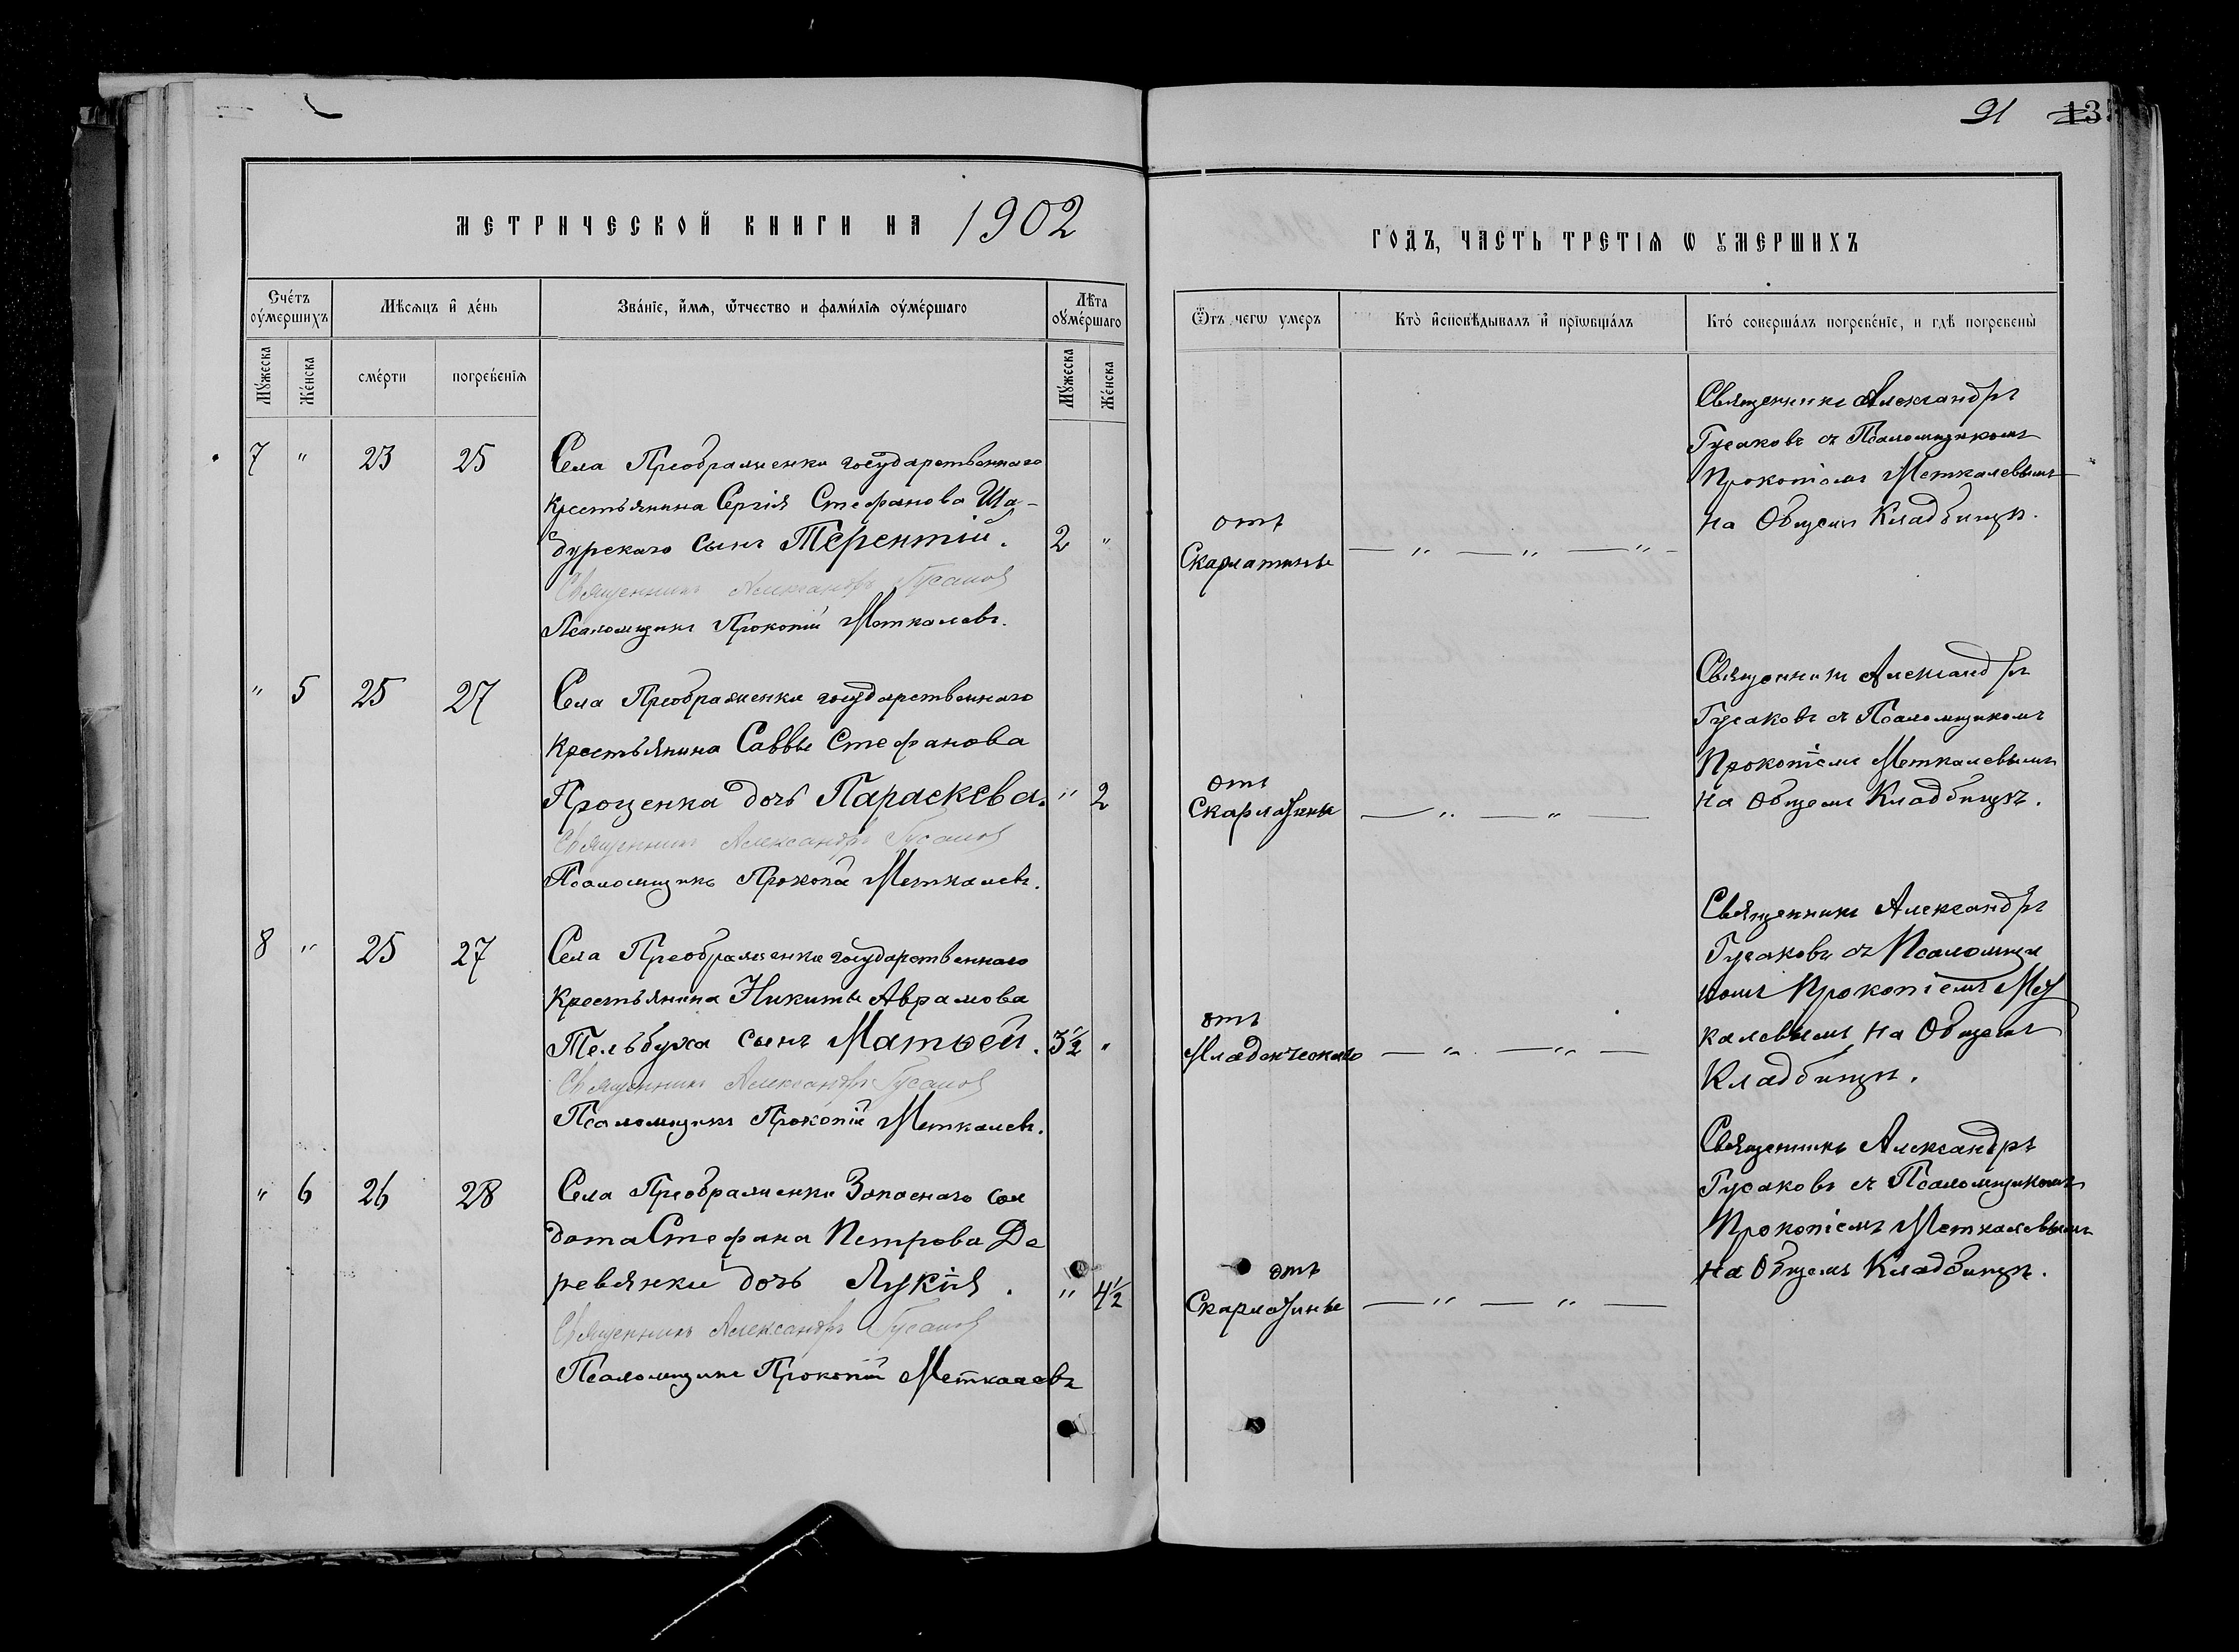 91 13
МЕТРИЧЕСКОЙ КНИГИ НА 1902
ГОДЪ, ЧАСТЬ ТРЕТІѦ Ѡ ꙊМЕРШИХЪ
Сче́тъ оу҆ме́ршихъ
Мѣсѧцъ и҆ де́нь
Зва́нїе, и҆́мѧ, ѻ҆́тчество и фами́лїѧ оу҆ме́ршагѡ
Лѣ́та оу҆ме́ршагѡ
Ѿ чегѡ̀ умеръ
Кто̀ и҆сповѣ́дывалъ и҆ прїѡбща́лъ
Кто́ соверша́лъ погребе́нїе, и гдѣ̀ погребены̀
Мꙋ́жеска
Же́нска
сме́рти
погребе́нїѧ
Мꙋ́жеска
Же́нска
7 " 23 25
Села Преображенки государственнаго
крестьянина Сергія Стефанова Ша-
дурскаго сынъ Терентій. 2 "
Священникъ Александръ Гусаков
Псаломщикъ Прокопій Меткалевъ.
отъ
Скарлатины — " — " — " —
Священникъ Александръ
Гусаковъ съ Псаломщикомъ
Прокопіемъ Меткалевымъ
на Общемъ Кладбищѣ.
" 5 25 27
Села Преображенки государственнаго
крестьянина Саввы Стефанова
Проценка дочь Параскева. " 2
Священникъ Александръ Гусаков
Псаломщикъ Прокопій Меткалевъ.
отъ
Скарлатины — " — " —
Священникъ Александръ
Гусаковъ съ Псаломщикомъ
Прокопіемъ Меткалевымъ
на Общемъ Кладбищѣ.
8 " 25 27
Села Преображенки государственнаго
крестьянина Никиты Аврамова
Тельбуха сынъ Матѳей. 3½ "
Священникъ Александръ Гусаков
Псаломщикъ Прокопій Меткалевъ.
отъ
Младенческаго — " — " —
Священникъ Александръ
Гусаковъ съ Псаломщи
комъ Прокопіемъ Мет
калевымъ на Общемъ
Кладбищѣ.
" 6 26 28
Села Преображенки Запаснаго сол
дата Стефана Петрова Де
ревянки дочь Лукія. " 4½
Священникъ Александръ Гусаков
Псаломщикъ Прокопій Меткалевъ
отъ
Скарлатины — " — " —
Священникъ Александръ
Гусаковъ съ Псаломщикомъ
Прокопіемъ Меткалевымъ
на Общемъ Кладбищѣ.